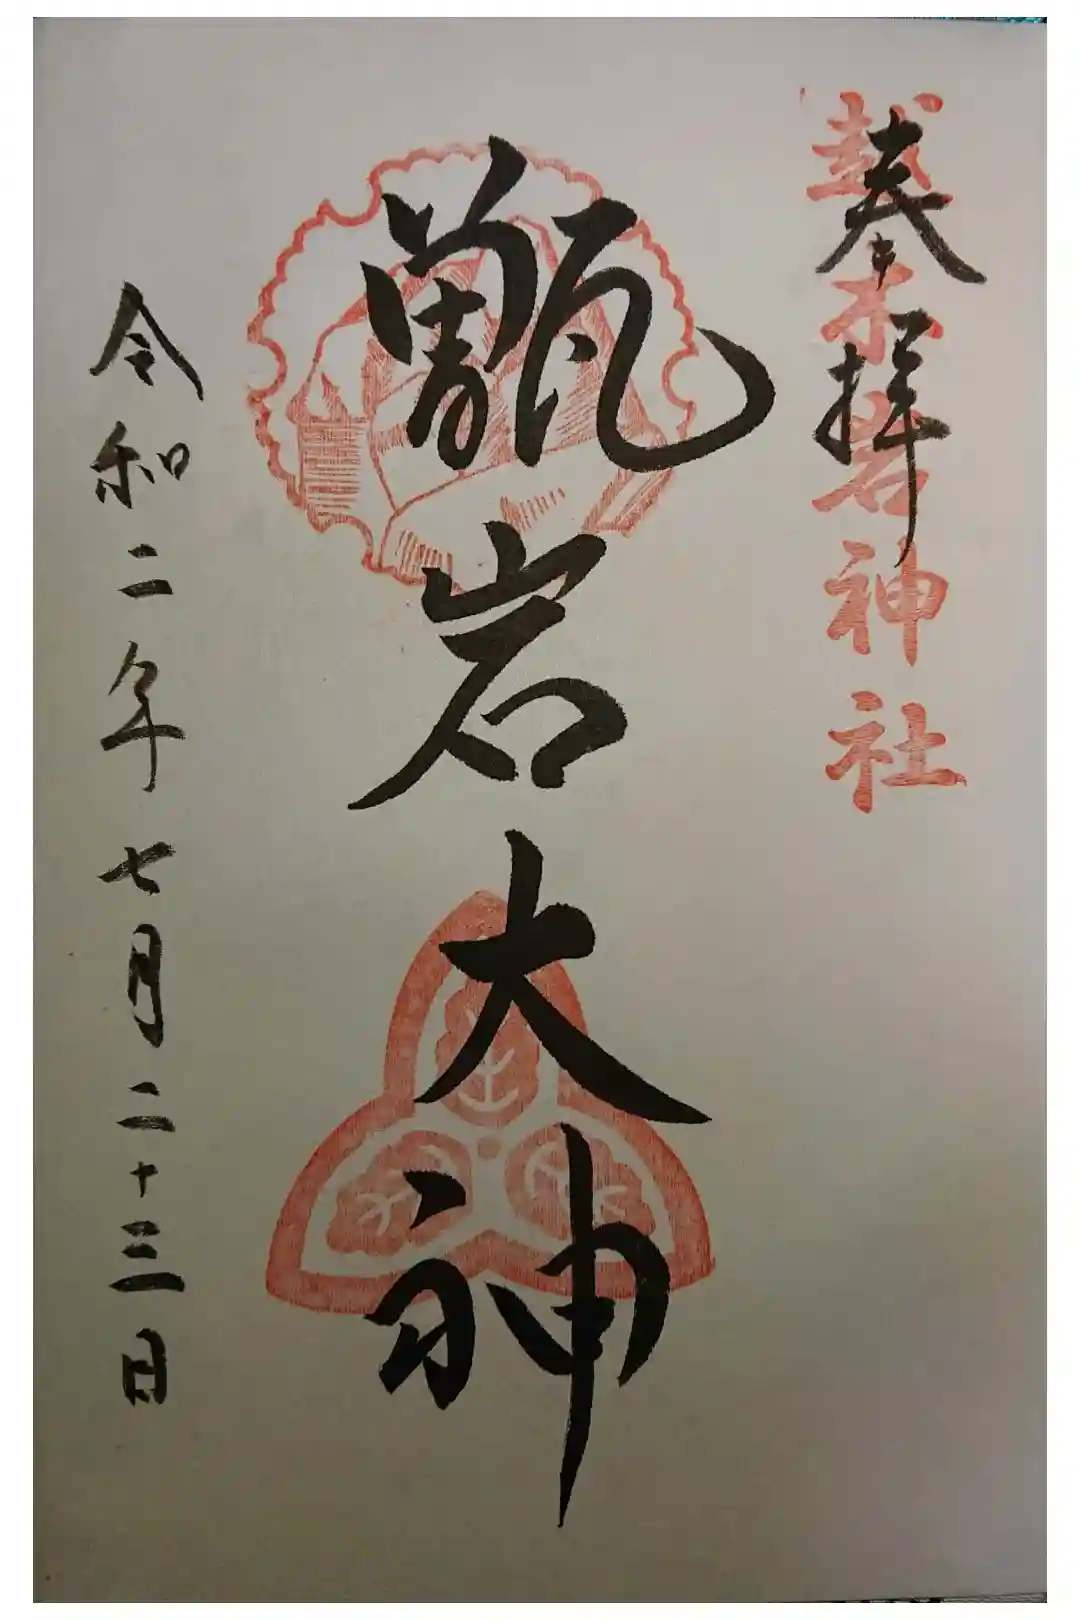 越木岩神社
奉拝
甑岩大神
令和二年七月二十三日